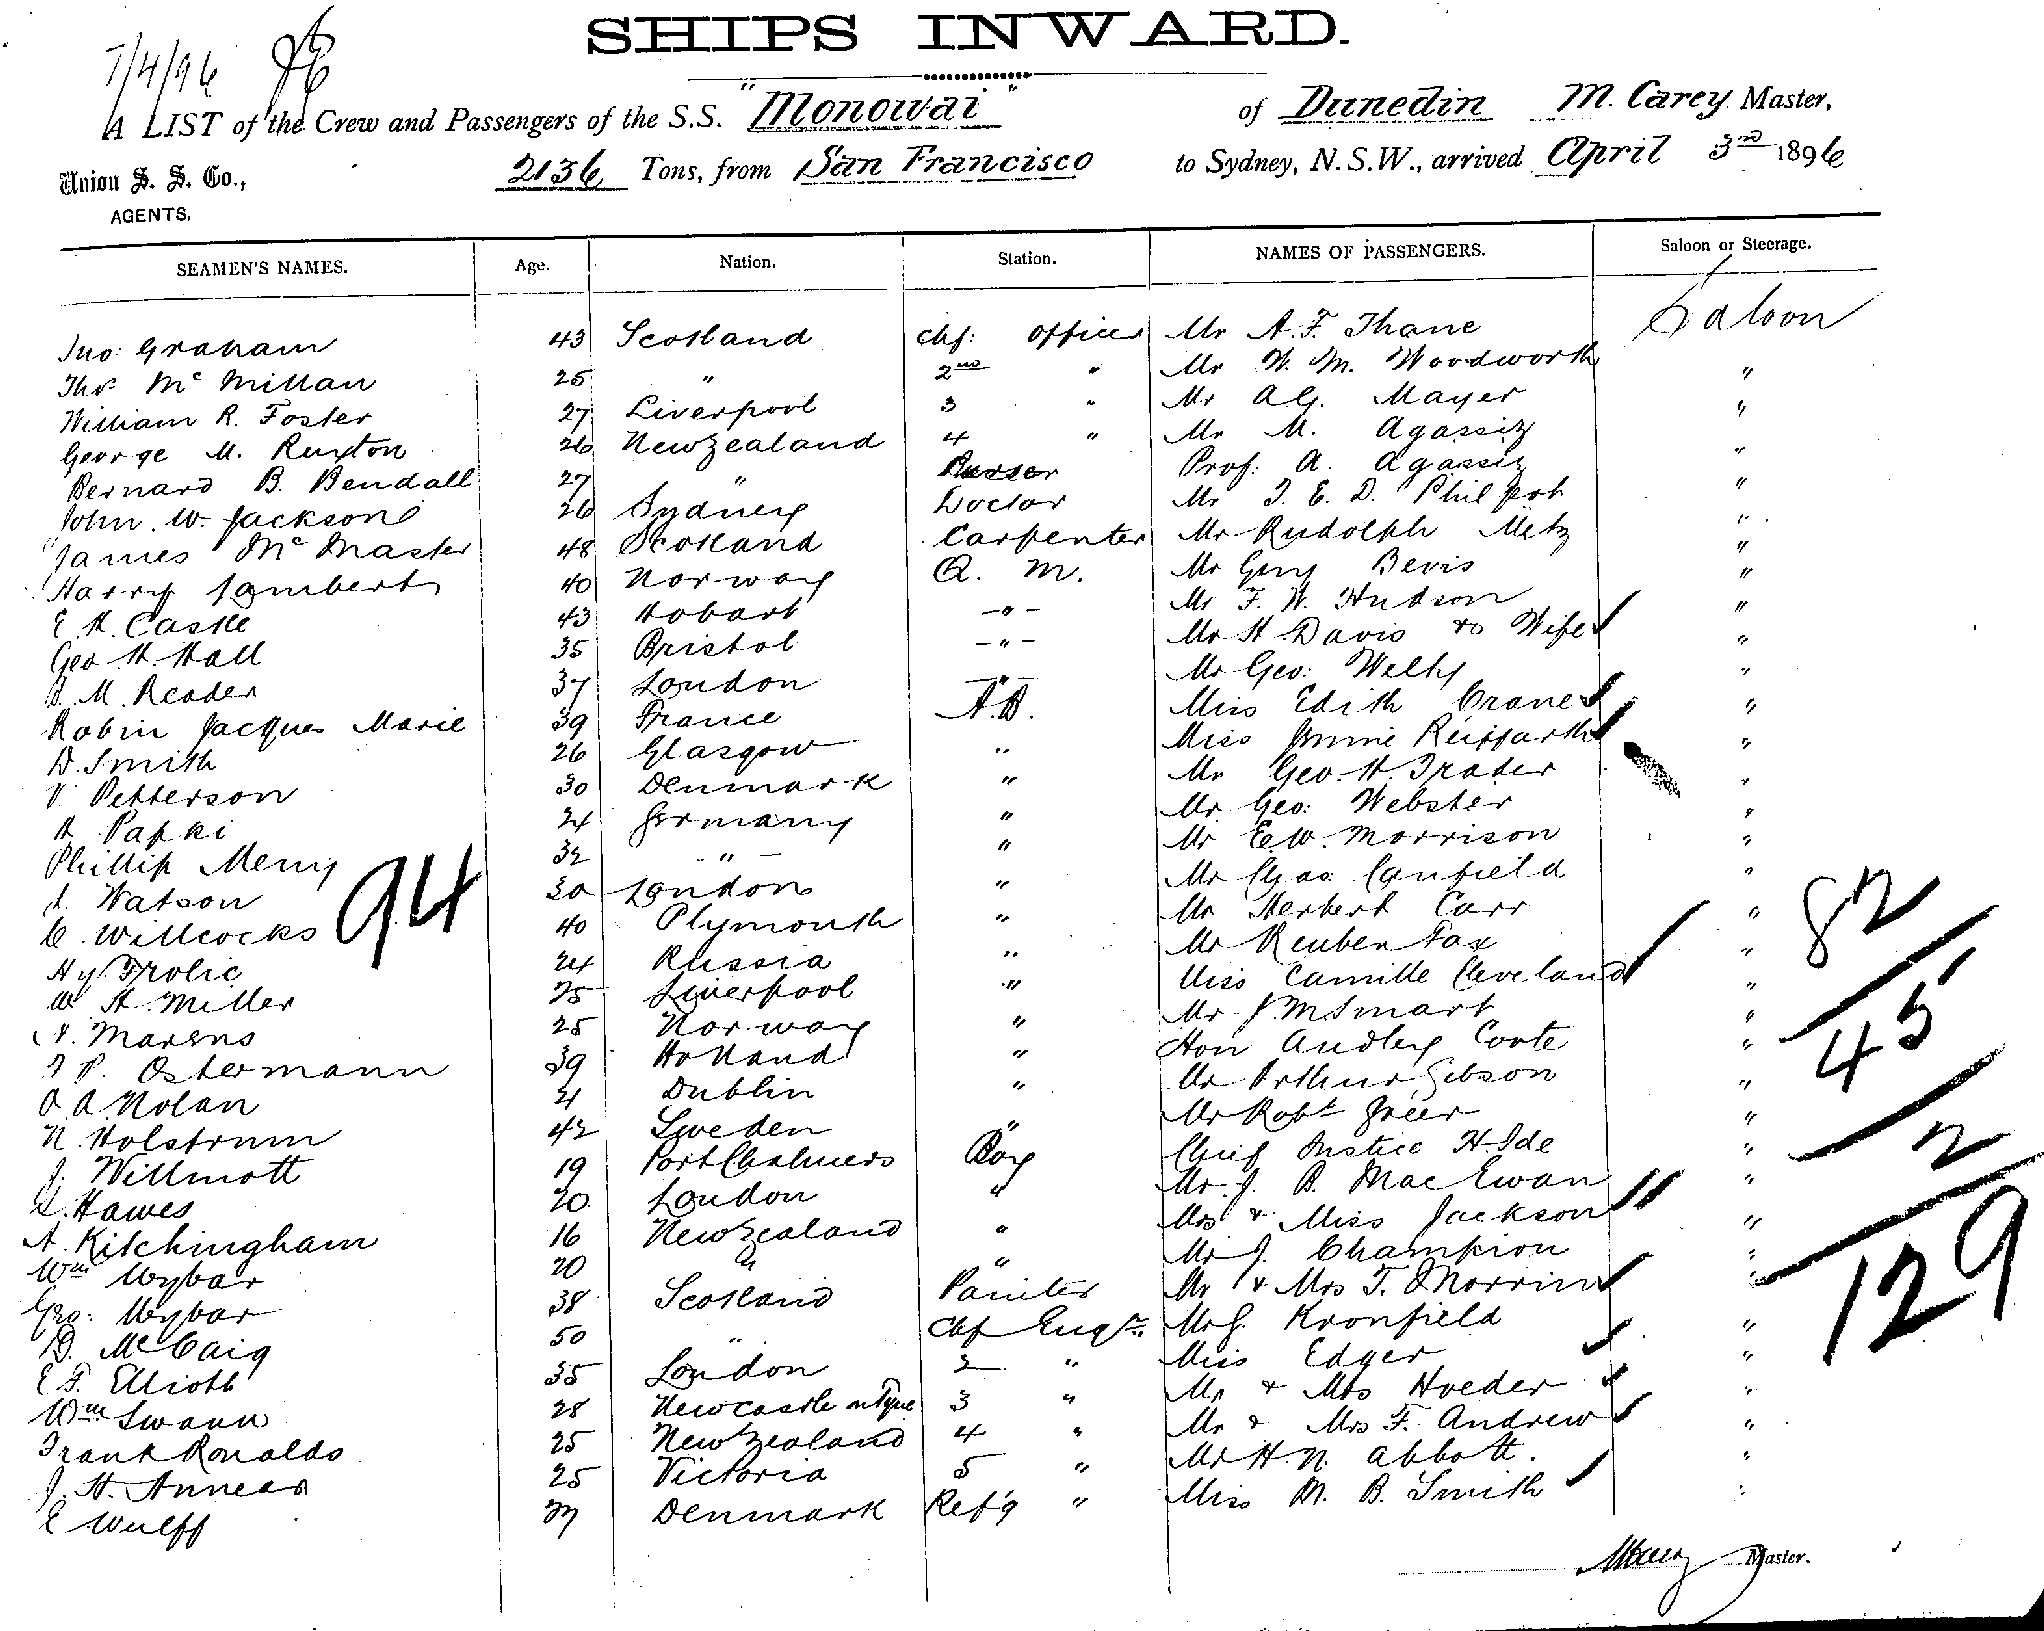 SHIPS INWARD.
7/4/96
A LIST of the Crew and Passengers of the S.S. "Monowai" of Dunedin M. Carey Master,
Union S. S. Co., 2136 Tons, from San Francisco to Sydney, N.S.W., arrived April 3rd 1896
AGENTS.
SEAMEN'S NAMES. Age. Nation. Station. NAMES OF PASSENGERS. Saloon or Steerage.
Jno: Graham 43 Scotland Chf: Officer Mr A. F. Thane Saloon
Thos Mc Millan 25 " 2nd " Mr W. M. Woodworth "
William R. Foster 27 Liverpool 3 " Mr A.G. Mayer "
George M. Ruxton 26 New Zealand 4 " Mr M. Agassiz "
Bernard B. Bendall 27 " Purser Prof: A. Agassiz "
John. W. Jackson 26 Sydney Doctor Mr T. E. D. Philpot "
James Mc Master 48 Scotland Carpenter Mr Rudolph Metz "
Harry Lambert 40 Norway Q. M. Mr Bevis "
E. H. Caske 43 Hobart -"- Mr F. W. Hudson "
Geo. H. Hall 35 Bristol -"- Mr H Davis & Wife "
M. Reader 37 London -"- Mr Geo: Welby "
Robin Jacques Marie 39 France A.B. Miss Edith Crane "
D. Smith 26 Glasgow " Miss Reiffarth "
V. Petterson 30 Denmark " Mr Geo. H. Trader "
Papki 24 Germany " Mr. Geo: Webster "
Phillip Merry 32 " " Mr E.W. Morrison "
Watson 30 London " Mr Chas. Canfield "
C. Willcocks 40 Plymouth " Mr Herbert Carr "
Hy Frolic 24 Russia " Mr Reuben Fax "
W H. Miller 25 Liverpool " Miss Camille Cleveland "
Marens 25 Norway " Mr J. M Smart "
P. Ostermann 39 Holland " Hon Audley Coote "
A. Nolan 21 Dublin " Mr Arthur Gibson "
N. Holstrum 42 Sweden " Mr Robt Greer "
J. Willmott 19 Port Chalmers Boy Chief Justice H. Ide "
Hawes 20 London " Mr. J. B. MacEwan "
A. Kitchingham 16 New Zealand " Mrs & Miss Jackson "
Wm Wybar 20 " " Mr J. Champion "
Geo: Wybar 38 Scotland Painter Mr & Mrs T. Morrin "
D. McCaig 50 " Chf Engr. Mr G. Kronfield "
E F. Elliott 35 London 2 " Miss Edger "
Wm Swann 28 Newcastle n Tyne 3 " Mr & Mrs Hoeder "
Frank Ronalds 25 New Zealand 4 " Mr & Mrs F. Andrew "
J. H. Annear 25 Victoria 5 " Mr H. N. Abbott. "
E Wulff 27 Denmark Ref'g " Miss M. B. Smith "
94
82
45
2
129
MCarey Master.